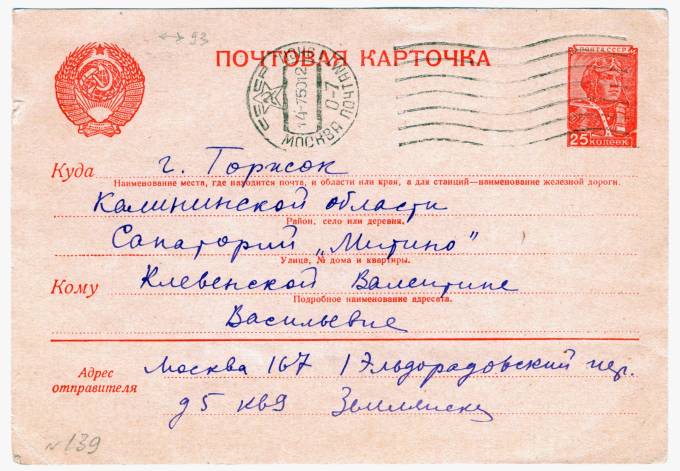 93
ПОЧТОВАЯ КАРТОЧКА
ПОЧТА СССР
25 КОПЕЕК
МОСКВА
Куда г. Торжок
Наименование места, где находится почта, и области или края, а для станций—наименование железной дороги.
Калининской области
Район, село или деревня.
Санаторий „Митино"
Улица, № дома и квартиры.
Кому Клевенской Валентине
Подробное наименование адресата.
Васильевне
Адрес отправителя
Москва 167 1 Эльдорадовский пер.
д5 кв9
№139